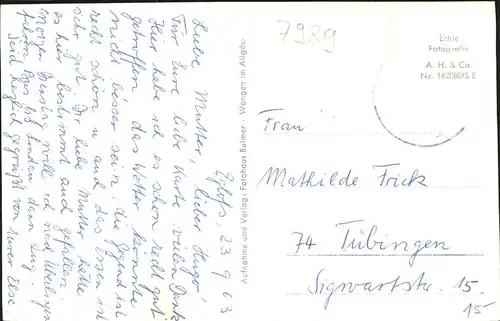 7989
Echte
Fotografie
A. H. & Co.
Nr. 162080/S E
Eglofs, 23.9.63
Liebe Mutter, lieber Hugo!
Für Eure liebe Karte vielen Dank
Hier habe ich es schon recht gut
getroffen, das Wetter könnte
nicht besser sein, die Gegend ist
recht schön und das Essen ist
sehr gut. Dir liebe Mutter hätte
es hier bestimmt auch gefallen.
Morgen Dienstag will ich nach Überlingen
fahren
Seid herzlich gegrüßt von Eurer Else
Aufnahme und Verlag: Fotohaus Bulmer - Wangen im Allgäu
Frau
Mathilde Frick
74 Tübingen
Sigwartstr. 15.
15